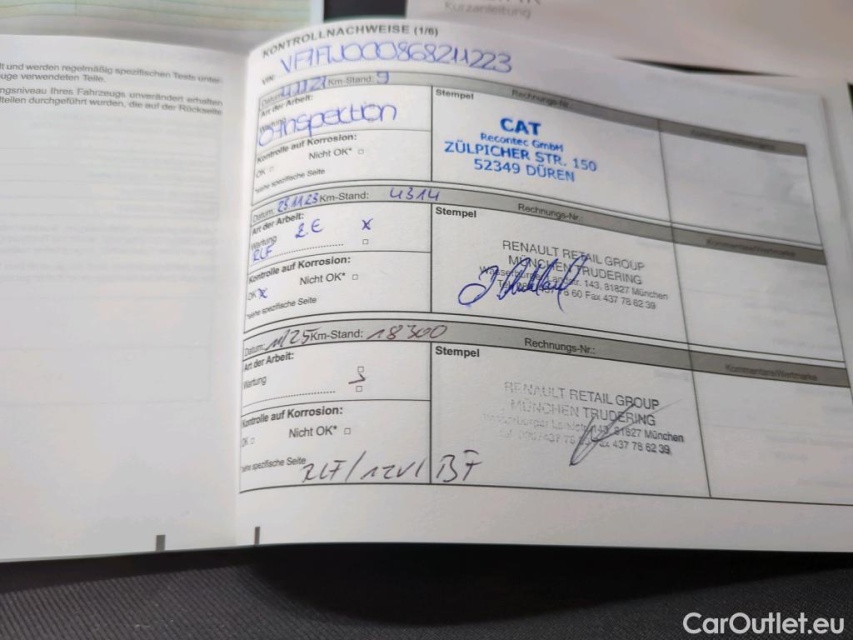 Kurzanleitung
t und werden regelmäßig spezifischen Tests unter
uge verwendeten Teile.
ngsniveau Ihres Fahrzeugs unverändert erhalten
teilen durchgeführt wurden, die auf der Rückseite
KONTROLLNACHWEISE (1/6)
VIN: VF1FJ000868211223
Datum: Km-Stand: 9 Rechnungs-Nr.:
Art der Arbeit:
Wartung
0-Inspection
Kontrolle auf Korrosion:
OK Nicht OK*
*siehe spezifische Seite
Stempel
CAT
Recontec GmbH
ZÜLPICHER STR. 150
52349 DÜREN
Datum: 23.11.23 Km-Stand: 4314 Rechnungs-Nr.:
Art der Arbeit: 2E X
Wartung
RLF
Kontrolle auf Korrosion:
OK X Nicht OK*
*siehe spezifische Seite
Stempel
RENAULT RETAIL GROUP
MÜNCHEN TRUDERING
143, 81827 München
Fax 437 78 62 39
Datum: 11/25 Km-Stand: 18300 Rechnungs-Nr.:
Art der Arbeit:
Wartung
Kontrolle auf Korrosion:
OK Nicht OK*
*siehe spezifische Seite RLF/12V/BF
Stempel
RENAULT RETAIL GROUP
MÜNCHEN TRUDERING
143, 81827 München
Fax 437 78 62 39
Kommentare/Wortmarke
CarOutlet.eu